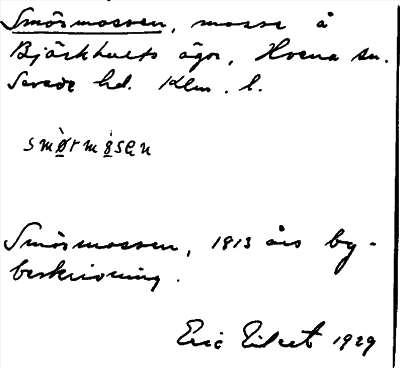 Smörmossen, mosse å
Björkhults ägor, Hvena sn.
Sevede hd. Klm. l.
smø̀rmåsen
Smörmossen, 1813 års by-
beskrivning.
Eric Eilert 1929